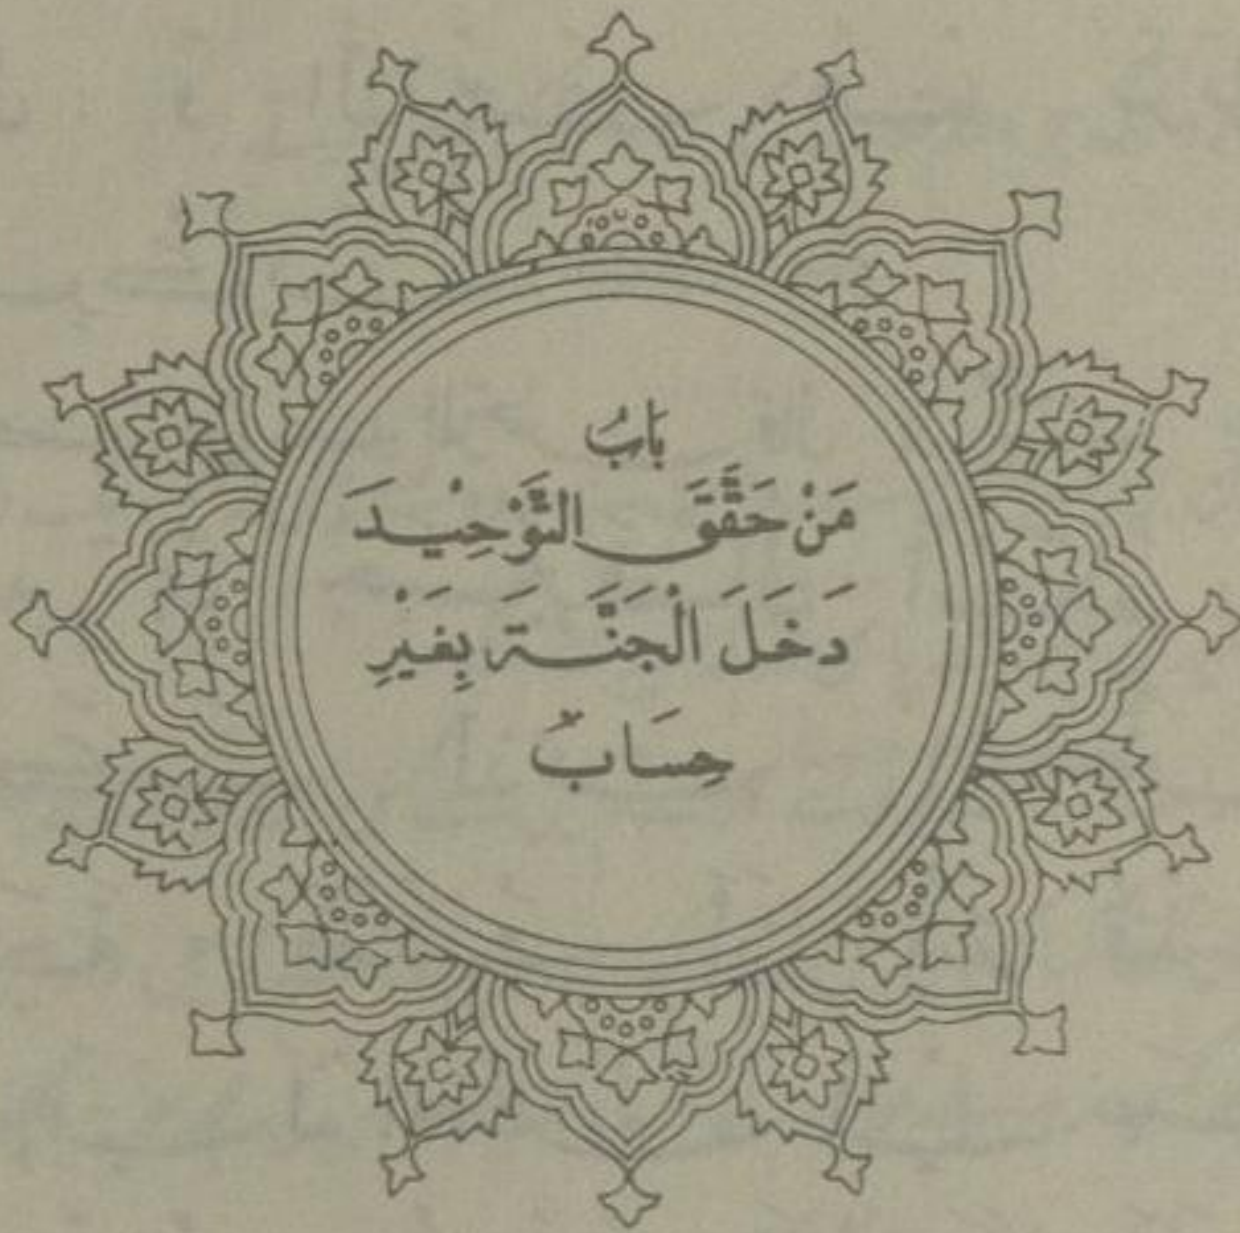 بَابُ
مَنْ حَقَّقَ التَّوْحِيْدَ
دَخَلَ الْجَنَّةَ بِغَيْرِ
حِسَابٍ